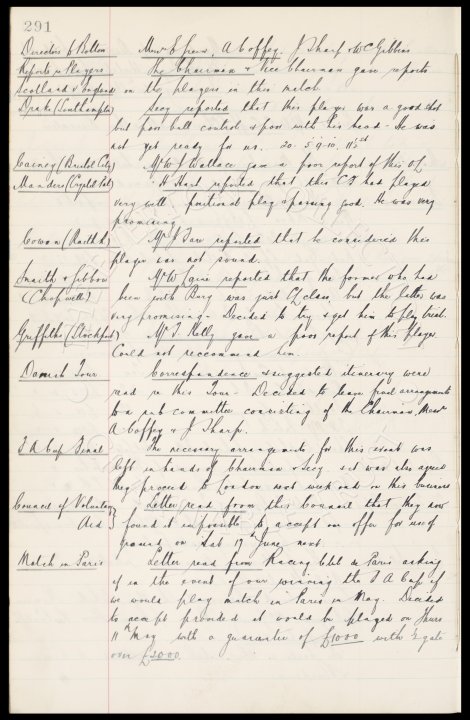 291
Directors to Bolton Messrs E Green, A Coffey, J Sharp & W C Gibbins
Reports re Players The Chairman & Vice Chairman gave reports
Scotland v England on the players in this match.
Drake (Southampton) Secy reported that this player was a good shot
but poor ball control & poor with his head - He was
not yet ready for us. 20. 5.9.10, 11st
Cainey (Bristol City) Mr W J Wallace gave a poor report of this OL
Manders (Crystal Pal) " H Hart reported that this CF had played
very well, positional play & passing good. He was very
promising
Cowan (Raith R) Mr J reported that he considered this
player was not sound.
Smith & Gibbon Mr reported that the former who had
(Chopwell) been with Bury was just CL class, but the latter was
very promising - Decided to try & get him to play trial.
Griffiths (Stockport) Mr J Kelly gave a poor report of this player
Could not reccommend him.
Danish Tour Correspondence & suggested itinerary were
read re this Tour - Decided to leave final arrangements
to a sub committee consisting of the Chairman, Messrs
A Coffey & J Sharp.
F A Cup Final The necessary arrangements for this event was
left in hands of Chairman & Secy & it was also agreed
they proceed to London next week end on this business
Council of Voluntary Letter read from this Council that they now
Aid } found it impossible to accept our offer for use of
ground on Sat 17th June next.
Match in Paris Letter read from Racing Club de Paris asking
if in the event of our winning the F A Cup if
we would play match in Paris in May. Decided
to accept provided it could be played on Thurs
11th May with a guarantee of £1000 with ½ gate
over £2000.